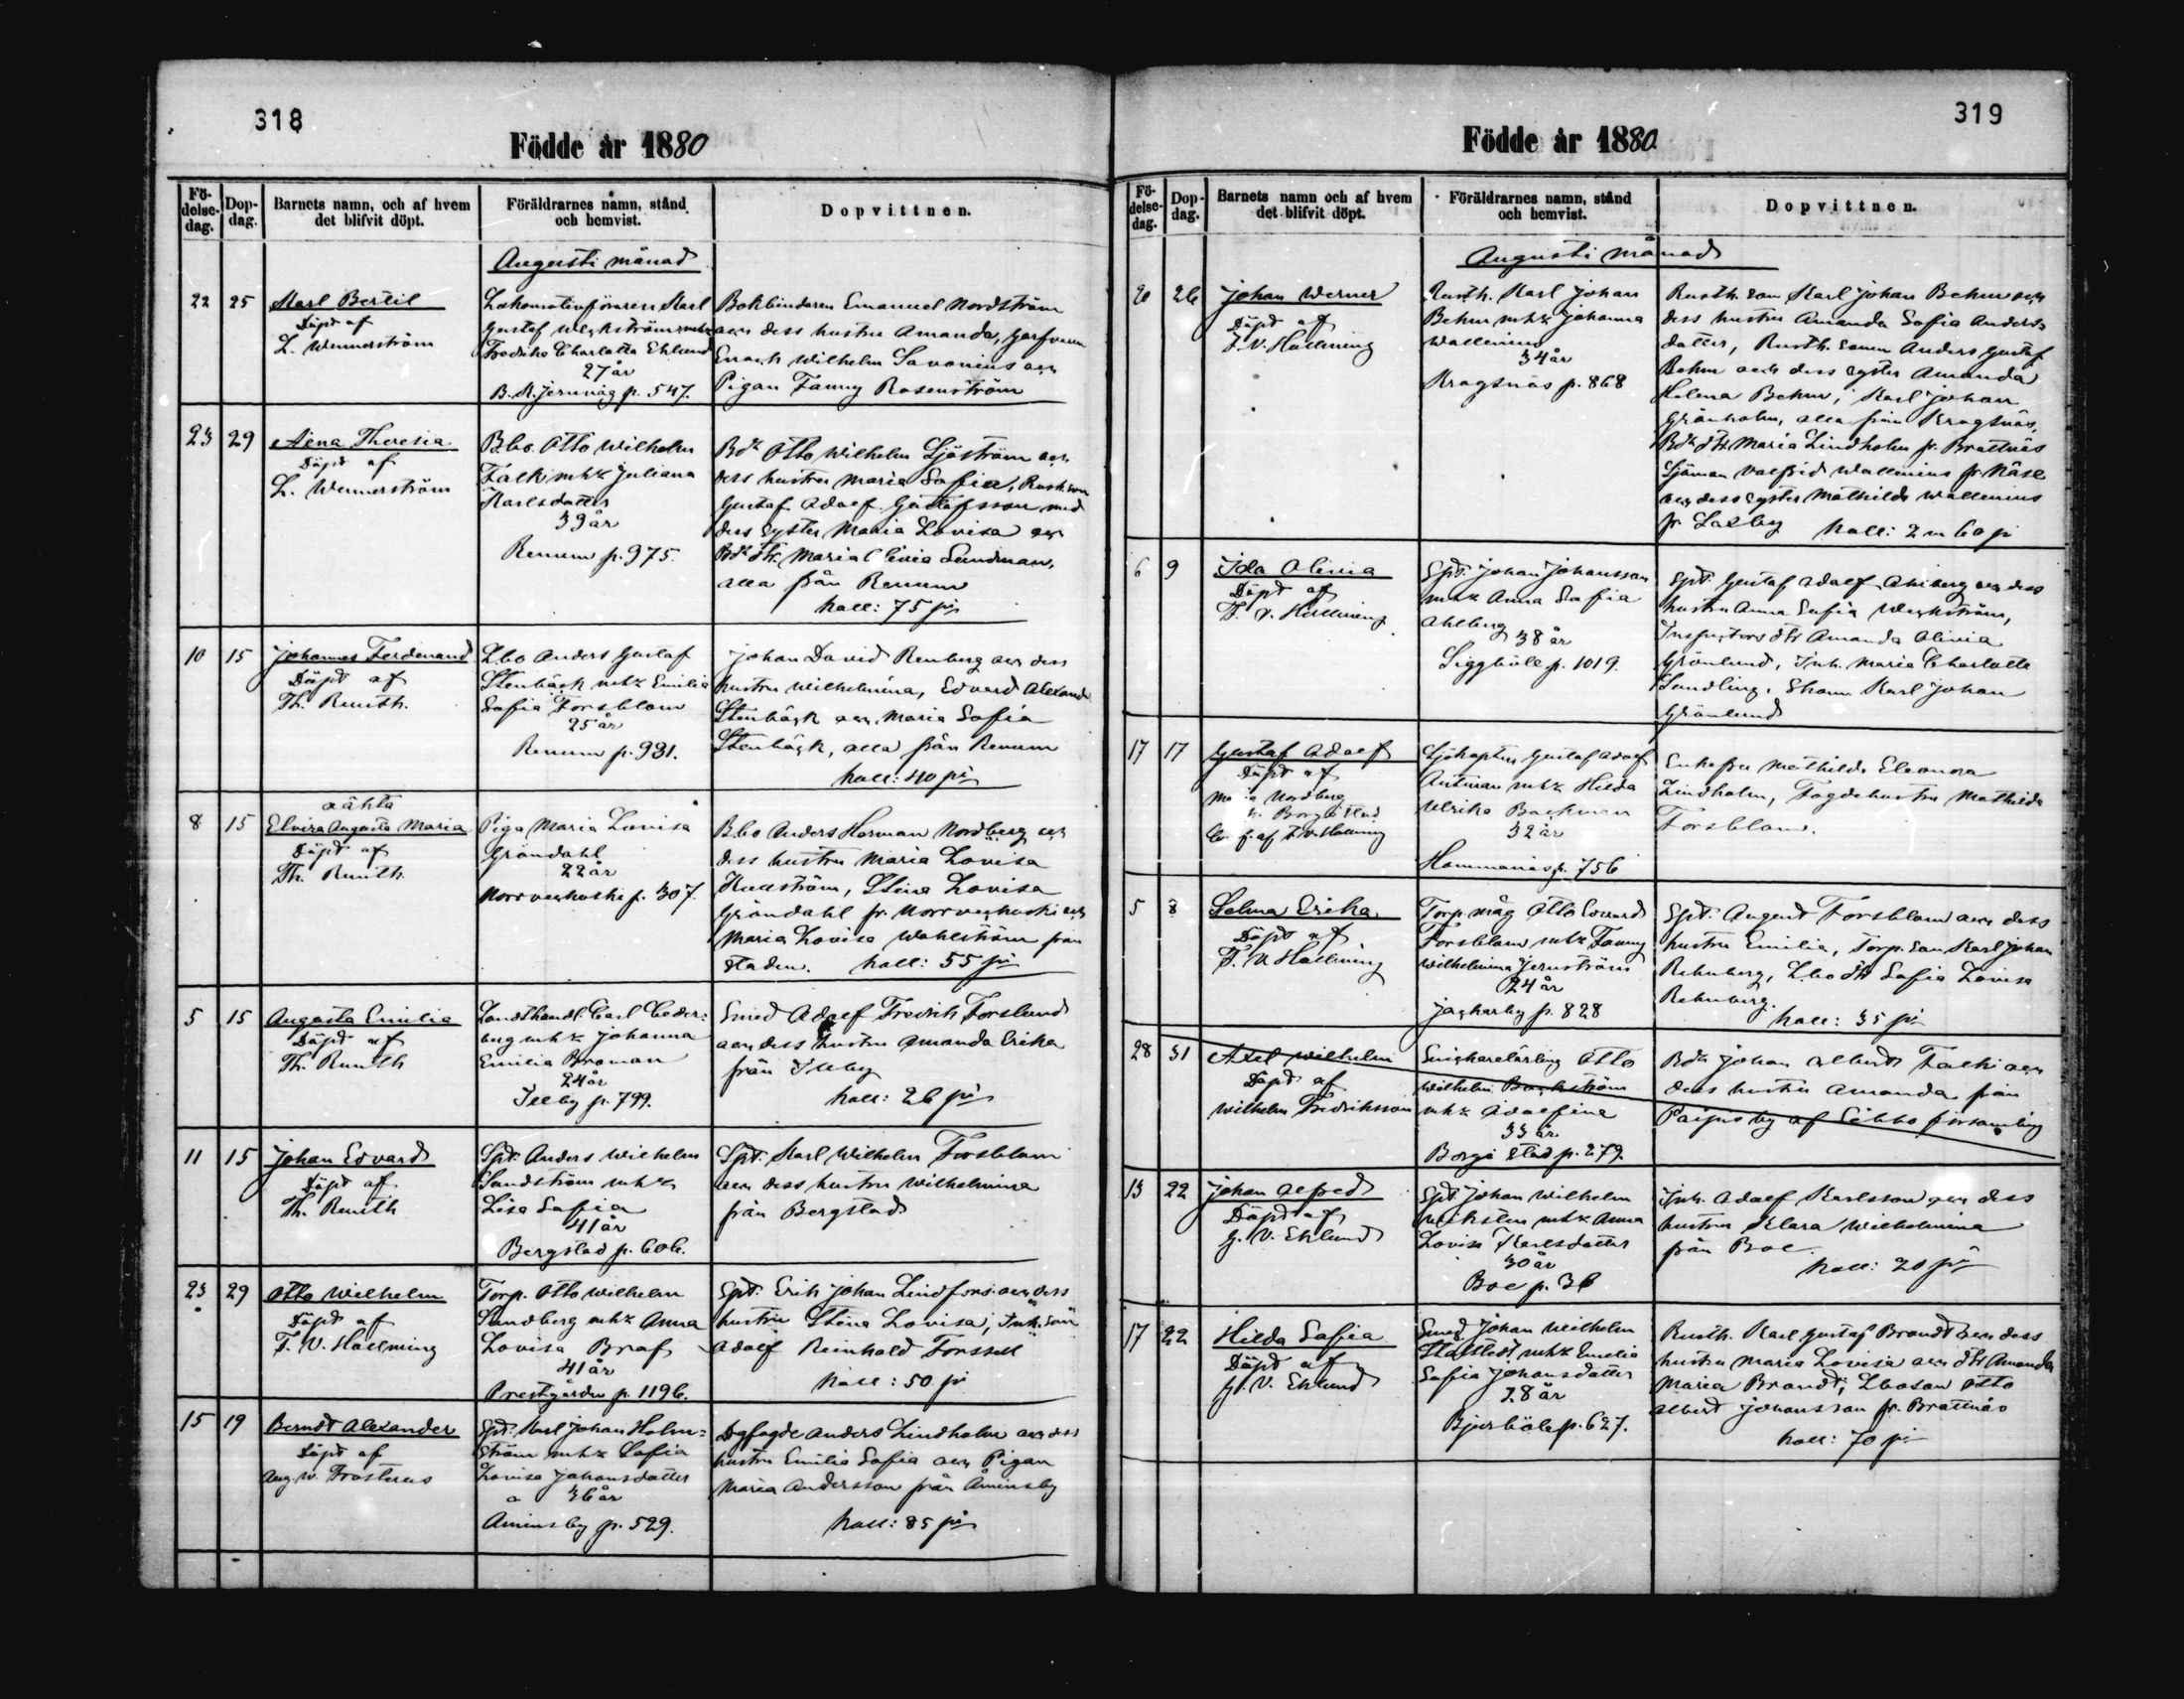 318
Födde år 1880
Fö-
delse-
dag.
Dop-
dag.
Barnets namn, och af hvem
det blifvit döpt.
Föräldrarnes namn, stånd
och hemvist.
Dopvittnen.
Augusti månad
22 25
Karl Bertil
Döpt af
L. Wennerström
Lokomotivföraren Karl
Gustaf Weckström mhz
Fredrika Charlotta Eklund
27 år
B. K. Jernväg p. 547.
Bokbindaren Emanuel Nordström
och dess hustru Amanda, Garfvaren
Enoch Wilhelm Savonius och
Pigan Fanny Rosenström
23 29
Aina Theresia
Döpt af
L. Wennerström
B.bo. Otto Wilhelm
Falk mhz Juliana
Karlsdotter
39 år
Renum p. 975.
Bdr Otto Wilhelm Sjöström och
dess hustru Maria Sofia, Rusth. son
Gustaf Adolf Gustafsson med
dess syster Maria Lovisa och
Bdr dtr. Maria Olivia Sundman,
alla från Renum
koll: 75 pi
10 15
Johannes Ferdinand
Döpt af
Th. Reuth.
Lbo Anders Gustaf
Stenbäck mhz Emilia
Sofia Forsblom
25 år
Renum p. 981.
Johan David Renberg och dess
hustru Wilhelmina, Edvard Alexand
Stenbäck och Maria Sofia
Stenbäck, alla från Renum
koll: 40 pi
8 15
oäkta
Elvira Augusta Maria
Döpt af
Th. Reuth
Piga Maria Lovisa
Gröndahl
22 år
Norrveckoski p. 307.
B.bo Anders Herman Nordberg och
dess hustru Maria Lovisa
Stina Lovisa
Gröndahl fr. Norrveckoski och
Maria Lovisa Wahlström från
staden. koll: 55 pi
5 15
Augusta Emilia
Döpt af
Th. Reuth
Landthandl. Carl Ceder-
berg mhz Johanna
Emilia Broman
24 år
Illby p. 799.
Smed Adolf Fredrik Forslund
och dess hustru Amanda Erika
från Illby
koll: 26 pi
11 15
Johan Edvard
Döpt af
Th. Reuth
Spt. Anders Wilhelm
Sandström mhz
Lisa Sofia
41 år
Bergstad p. 606.
Spt. Karl Wilhelm Forsblom
och dess hustru Wilhelmina
från Bergstad
23 29
Otto Wilhelm
Döpt af
F. V. Hallming
Torp. Otto Wilhelm
Sundberg mhz Anna
Lovisa Braf
41 år
Prestgården p. 1196.
Spt. Erik Johan Lindfors och dess
hustru Stina Lovisa, Inh. son
Adolf Reinhold Forssell
koll: 50 pi
15 19
Berndt Alexander
Döpt af
Aug. W. Frosterus
Spt. Karl Johan Holm-
ström mhz Sofia
Lovisa Johansdotter
36 år
Åminsby p. 529.
Dagfogde Anders Lindholm och dess
hustru Emilia Sofia och Pigan
Maria Andersson från Åminsby
koll: 85 pi
319
Födde år 1880
Fö-
delse-
dag.
Dop-
dag.
Barnets namn och af hvem
det blifvit döpt.
Föräldrarnes namn, stånd
och hemvist.
Dopvittnen.
Augusti månad
20 26
Johan Werner
Döpt af
F. V. Hallming
Rusth. Karl Johan
Behm mhz Johanna
Wallenius
34 år
Kragsnäs p. 868
Rusth. son Karl Johan Behm och
dess hustru Amanda Sofia Anders-
dotter, Rusth. sonen Anders Gustaf
Behm och dess syster Amanda
Helena Behm, Karl Johan
Grönholm, alla från Kragsnäs,
Bdr dtr Maria Lindholm fr. Brattnäs
Sjöman Valfrid Wallenius fr. Näse
och dess syster Mathilda Wallenius
fr. koll: 2 m 60 pi
6 9
Ida Olivia
Döpt af
F. V. Hallming
Spt. Johan Johansson
mhz Anna Sofia
Ahlberg
38 år
Siggböle p. 1019.
Spt. Gustaf Adolf Ahlberg och dess
hustru Anna Sofia Weckström,
Inspectors dtr Amanda Olivia
Grönlund, Inh. Maria Charlotta
Sundling, Karl Johan
Grönlund
17 17
Gustaf Adolf
Döpt af
Nordberg
Borgå stad
af F. V. Hallming
Sjökapten Gustaf Adolf
Antman mhz Hilda
Ulrika Backman
32 år
Hammars p. 756
Enkefru Mathilda Eleonora
Lindholm, Fogdehustru Mathilda
Forsblom.
5 8
Selma Erika
Döpt af
F. V. Hallming
Torp. måg Otto Edvard
Forsblom mhz Fanny
Wilhelmina Jernström
24 år
Jackarby p. 828
Spt. August Forsblom och dess
hustru Emilia, Torp. son Karl Johan
Rehnberg, Lbo dtr Sofia Lovisa
Rehnberg.
koll: 35 pi
28 31
Axel Wilhelm
Döpt af
Wilhelm Fredriksson
Snickarelärling Otto
Wilhelm Backström
mhz Adolfina
33 år
Borgå stad p. 279.
Bdr Johan Albert Falk och
dess hustru Amanda från
Paipis by af Sibbo församling
13 22
Johan Alfred
Döpt af
G. V. Eklund
Spt. Johan Wilhelm
Wiksten mhz Anna
Lovisa Karlsdotter
30 år
Boe p. 36
Inh. Adolf Karlsson och dess
hustru Klara Wilhelmina
från Boe.
koll: 20 pi
17 22
Hilda Sofia
Döpt af
G. V. Eklund
Smed Johan Wilhelm
Stållstedt mhz Emilia
Sofia Johansdotter
28 år
Bjurböle p. 627.
Rusth. Karl Gustaf Brandt och dess
hustru Maria Lovisa och dtr Amanda
Maria Brandt, Lboson Otto
Albert Johansson fr. Brattnäs
koll: 70 pi